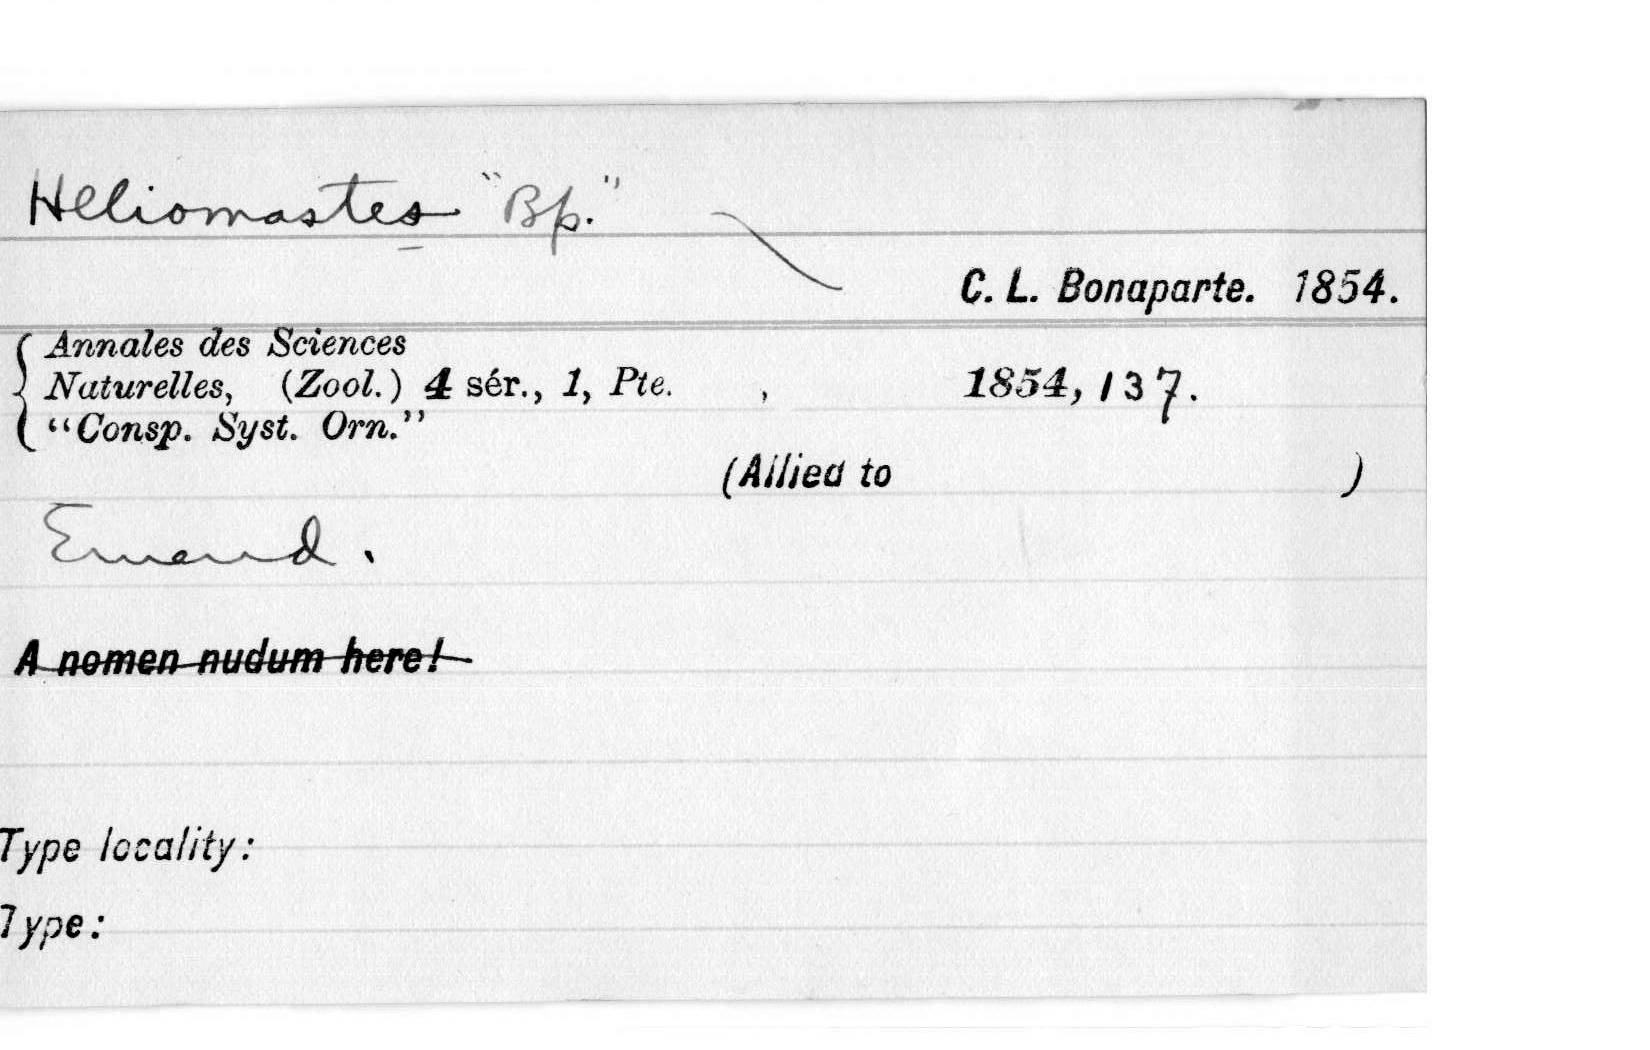 Heliomastes "Bp."
C. L. Bonaparte. 1854.
Annales des Sciences
Naturelles, (Zool.) 4 sér., 1, Pte. , 1854, 137.
"Consp. Syst. Orn."
(Allied to )
Emend.
A nomen nudum here!
Type locality:
Type: